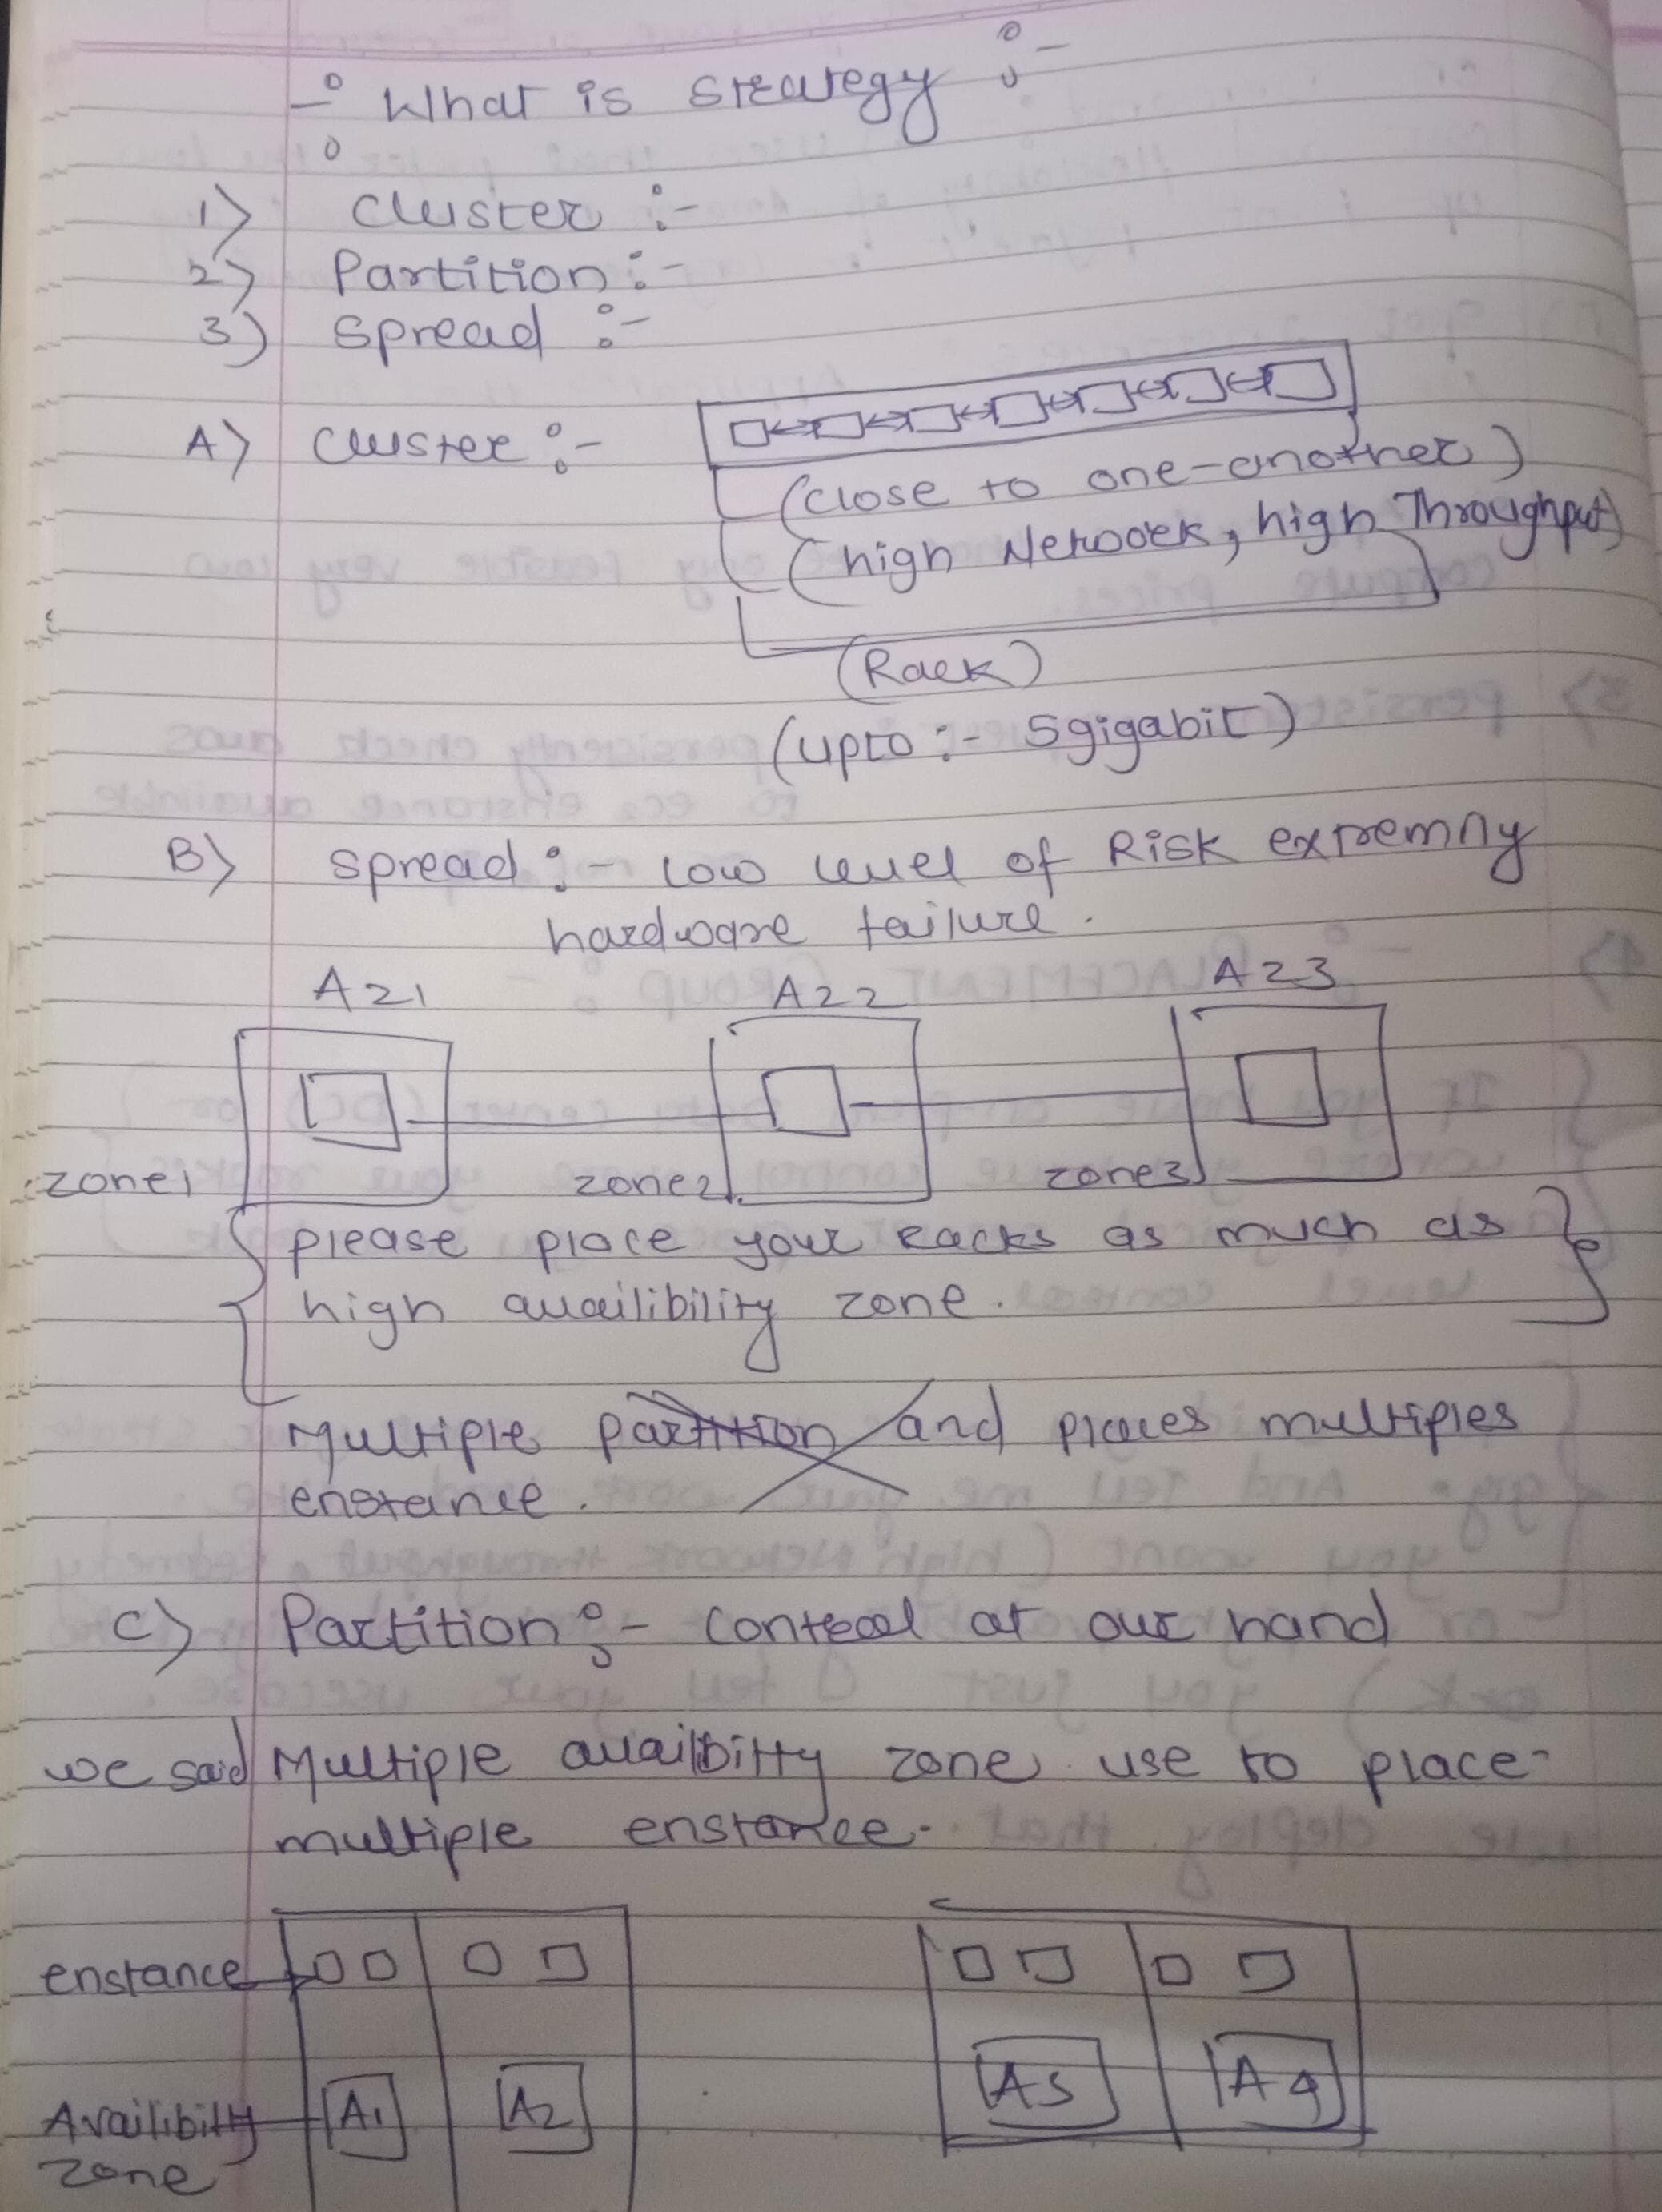 -: What is strategy :-
1) Cluster :-
2) Partition :-
3) Spread :-
A) Cluster :-
(close to one-another)
(high Network, high Throughput)
(Rack)
(upto :- 5gigabit)
B) Spread :- low level of Risk extremny
hardware failure.
AZ1 AZ2 AZ3
zone1 zone2 zone3
please place your racks as much as
high availibility zone.
Multiple partition and places multiples
enstance.
C) Partition :- control at our hand
we said Multiple availibitty zone use to place-
multiple enstance.
enstance
A1 A2 A4
Availibilty
zone